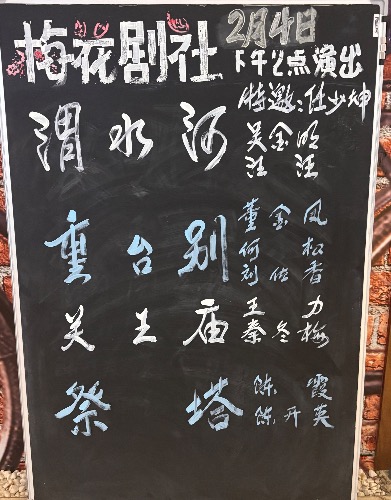 梅花剧社
2月4日
下午2点演出
特邀:任少坤
渭水河
吴金明
重台别
董金凤
何松
刘佐香
关王庙
王力
秦冬梅
祭塔
陈霞
陈开英